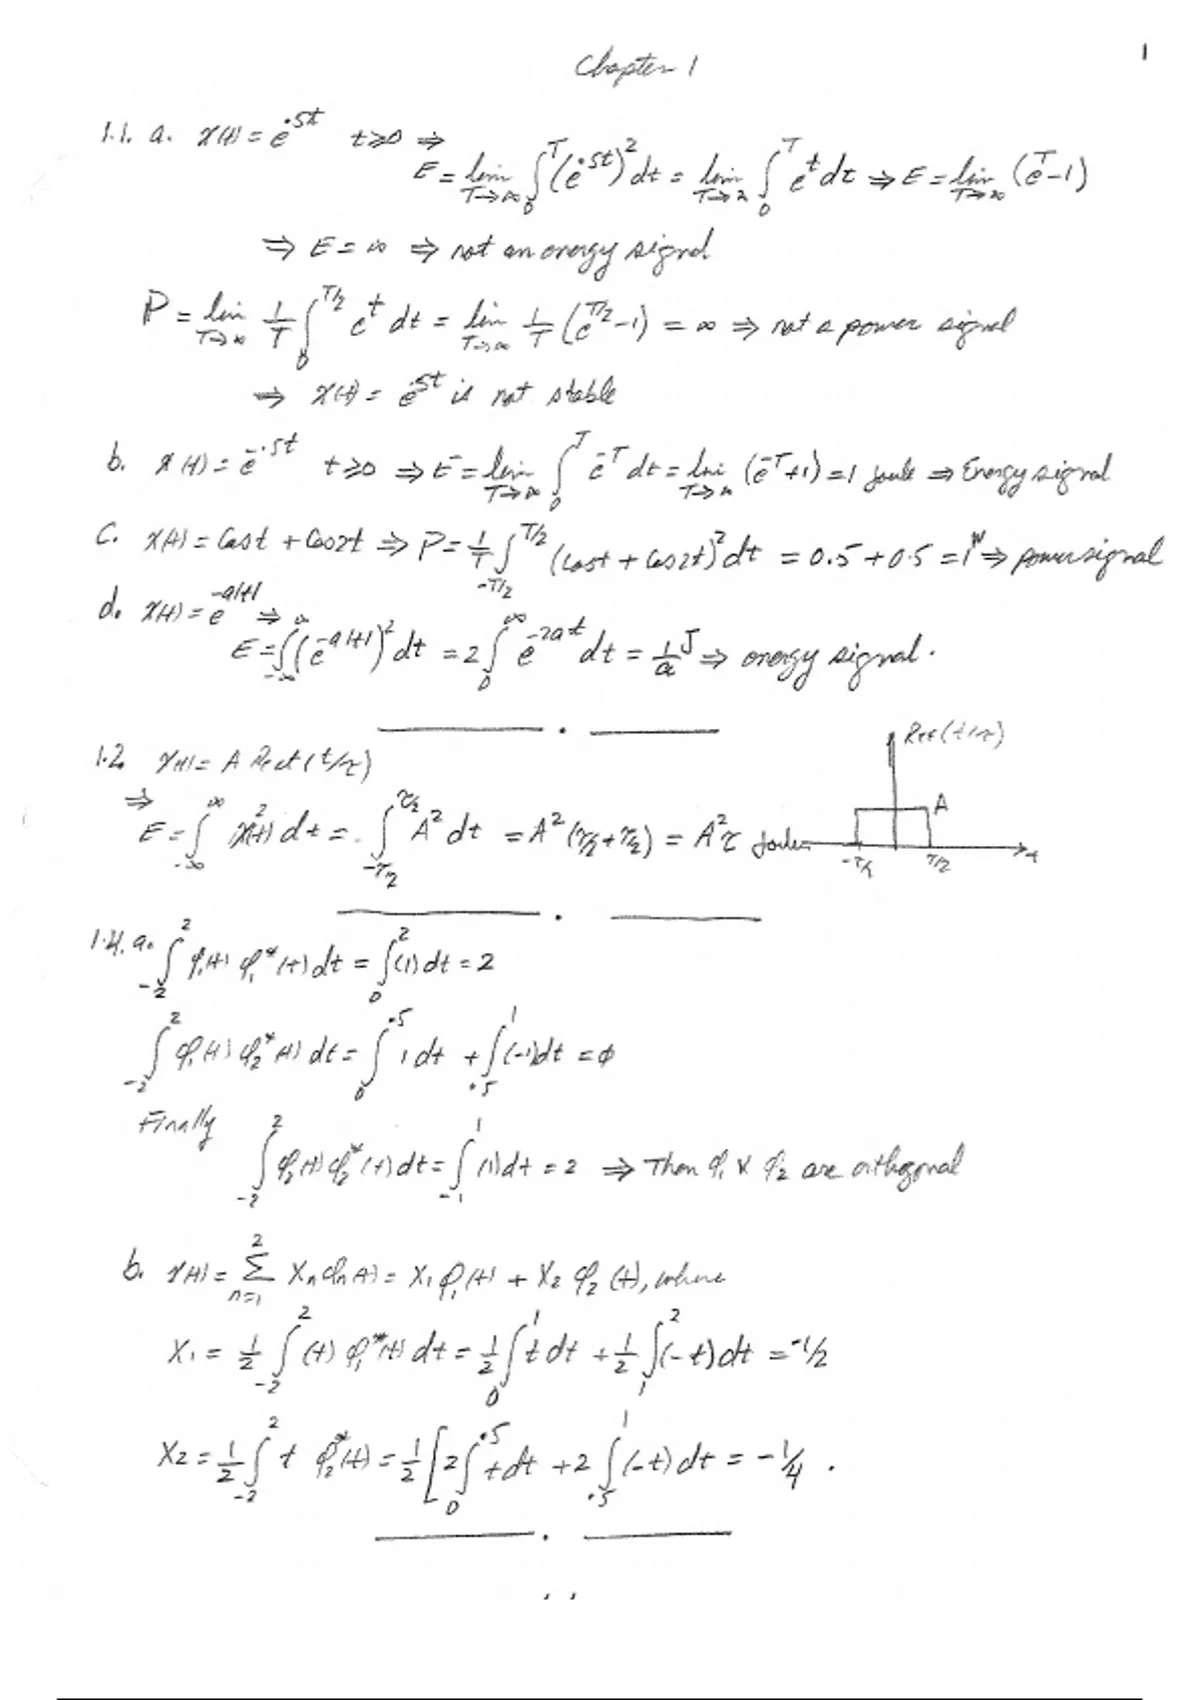 1
Chapter 1
1.1. a. x(t) = e^{.5t} t≥0 ⇒
E = lim_{T→∞} ∫_0^T (e^{.5t})^2 dt = lim_{T→∞} ∫_0^T e^t dt ⇒ E = lim_{T→∞} (e^T - 1)
⇒ E = ∞ ⇒ not an energy signal
P = lim_{T→∞} 1/T ∫_0^{T/2} e^t dt = lim_{T→∞} 1/T (e^{T/2} - 1) = ∞ ⇒ not a power signal
⇒ x(t) = e^{.5t} is not stable
b. x(t) = e^{-.5t} t≥0 ⇒ E = lim_{T→∞} ∫_0^T e^{-T} dt = lim_{T→∞} (e^{-T} + 1) = 1 Joule ⇒ Energy signal
c. x(t) = Cost + Cos2t ⇒ P = 1/T ∫_{-T/2}^{T/2} (Cost + Cos2t)^2 dt = 0.5 + 0.5 = 1^W ⇒ power signal
d. x(t) = e^{-a|t|} ⇒
E = ∫_{-∞}^{∞} (e^{-a|t|})^2 dt = 2 ∫_0^∞ e^{-2at} dt = 1/a J ⇒ energy signal.
1.2. x(t) = A Rect(t/τ)
Rec(t/τ)
⇒ E = ∫_{-∞}^{∞} x^2(t) dt = ∫_{-τ/2}^{τ/2} A^2 dt = A^2 (τ/2 + τ/2) = A^2 τ Joules
A
-τ/2 τ/2 t
1.4. a. ∫_{-2}^{2} φ_1(t) φ_1^*(t) dt = ∫_0^2 (1) dt = 2
∫_{-2}^{2} φ_1(t) φ_2^*(t) dt = ∫_0^{.5} 1 dt + ∫_{.5}^{1} (-1) dt = φ
Finally
∫_{-2}^{2} φ_2(t) φ_2^*(t) dt = ∫_{-1}^{1} (1) dt = 2 ⇒ Then φ_1 & φ_2 are orthogonal
b. x(t) = Σ_{n=1}^{2} X_n φ_n(t) = X_1 φ_1(t) + X_2 φ_2(t), where
X_1 = 1/2 ∫_{-2}^{2} (t) φ_1^*(t) dt = 1/2 ∫_0^1 t dt + 1/2 ∫_1^2 (-t) dt = -1/2
X_2 = 1/2 ∫_{-2}^{2} t φ_2^*(t) = 1/2 [2 ∫_0^{.5} t dt + 2 ∫_{.5}^{1} (-t) dt = -1/4 .